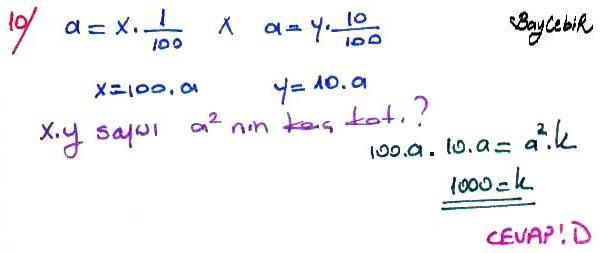 10) a = x . 1/100 x a = y . 10/100 BayCebiR
x = 100 . a y = 10 . a
x . y sayısı a² nın kaç kat. ?
100 . a . 10 . a = a² . k
1000 = k
CEVAP! D